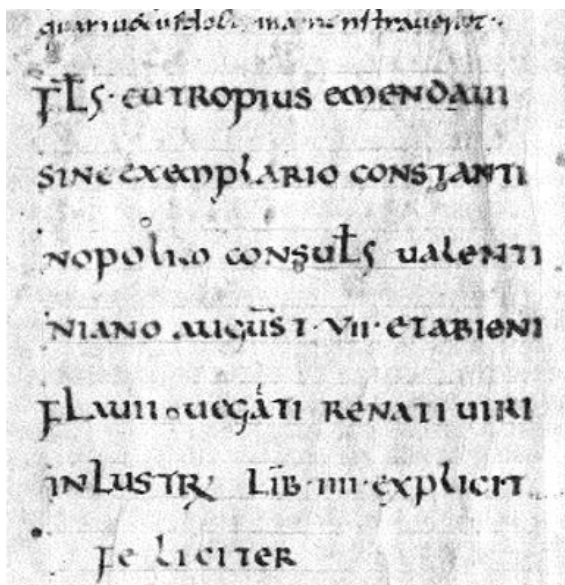 FLS · EUTROPIUS EMENDAUI
SINE EXEMPLARIO CONSTANTI
NOPOLIRO CONSULS UALENTI
NIANO AUGUST · VII · ET ABIENI
FLAUII UEGATI RENATI UIRI
INLUSTR LIB · IIII · EXPLICIT
FELICITER